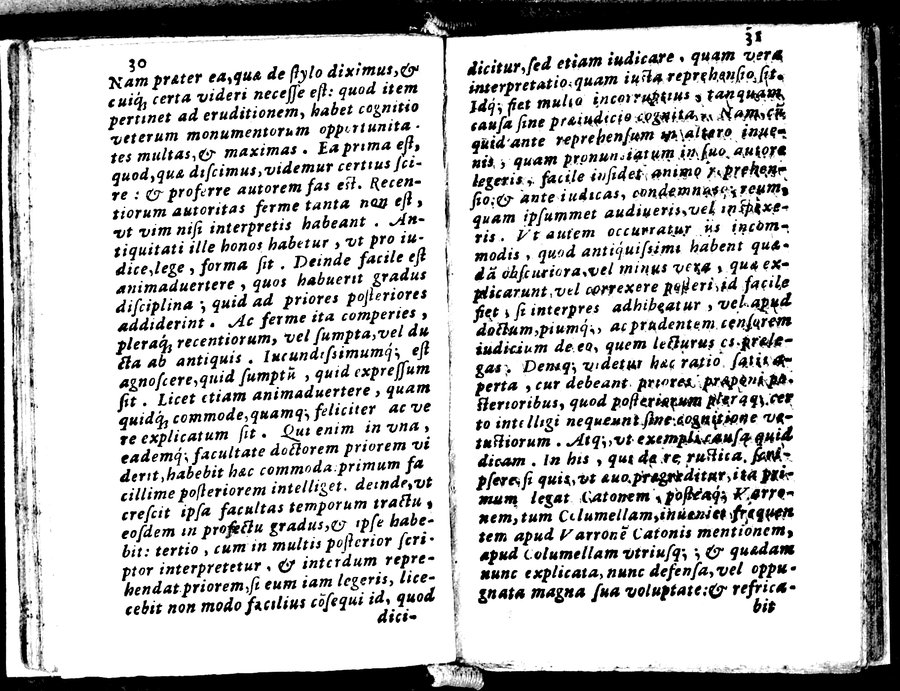 30
Nam præter ea, quæ de stylo diximus, &
cuiq; certa videri necesse est: quod item
pertinet ad eruditionem, habet cognitio
veterum monumentorum opportunita-
tes multas, & maximas. Ea prima est,
quod, quæ discimus, videmur certius sci-
re: & proferre autorem fas est. Recen-
tiorum autoritas ferme tanta non est,
vt vim nisi interpretis habeant. An-
tiquitati ille honos habetur, vt pro iu-
dice, lege, forma sit. Deinde facile est
animaduertere, quos habuerit gradus
disciplina; quid ad priores posteriores
addiderint. Ac ferme ita comperies,
pleraq; recentiorum, vel sumpta, vel du
cta ab antiquis. Iucundissimumq; est
agnoscere, quid sumptū, quid expressum
sit. Licet etiam animaduertere, quam
quidq; commode, quamq; feliciter ac ve
re explicatum sit. Qui enim in vna,
eademq; facultate doctorem priorem vi
derit, habebit hæc commoda. primum fa
cillime posteriorem intelliget. deinde, vt
crescit ipsa facultas temporum tractu,
eosdem in profectu gradus, & ipse habe-
bit: tertio, cum in multis posterior scri-
ptor interpretetur, & interdum repre-
hendat priorem, si eum iam legeris, lice-
cebit non modo facilius cōsequi id, quod
dici-
31
dicitur, sed etiam iudicare, quam vera
interpretatio: quam iusta reprehensio sit.
Idq; fiet multo incorruptius, tanquam
causa sine præiudicio cognita. Nam cū
quid ante reprehensum in altero inue-
nis, quam pronunciatum in suo autore
legeris, facile insidet animo reprehen-
sio: & ante iudicas, condemnasq; reum,
quam ipsummet audiueris, vel inspexe-
ris. Vt autem occurratur iis incom-
modis, quod antiquissimi habent quæ-
dā obscuriora, vel minus vera, quæ ex-
plicarunt, vel correxere posteri, id facile
fiet, si interpres adhibeatur, vel apud
doctum, piumq;, ac prudentem censorem
iudicium de eo, quem lecturus es præle-
gas. Deniq; videtur hæc ratio satis a-
perta, cur debeant priores præponi po-
sterioribus, quod posteriorum pleraq; cer
to intelligi nequeunt sine cognitione ve-
tustiorum. Atq;, vt exempli causa quid
dicam. In his, qui de re rustica scri-
psere, si quis, vt æuo prægreditur, ita pri-
mum legat Catonem, posteaq; Varro-
nem, tum Columellam, inueniet frequen
tem apud Varronē Catonis mentionem,
apud Columellam vtriusq;; & quædam
nunc explicata, nunc defensa, vel oppu-
gnata magna sua voluptate: & refrica-
bit